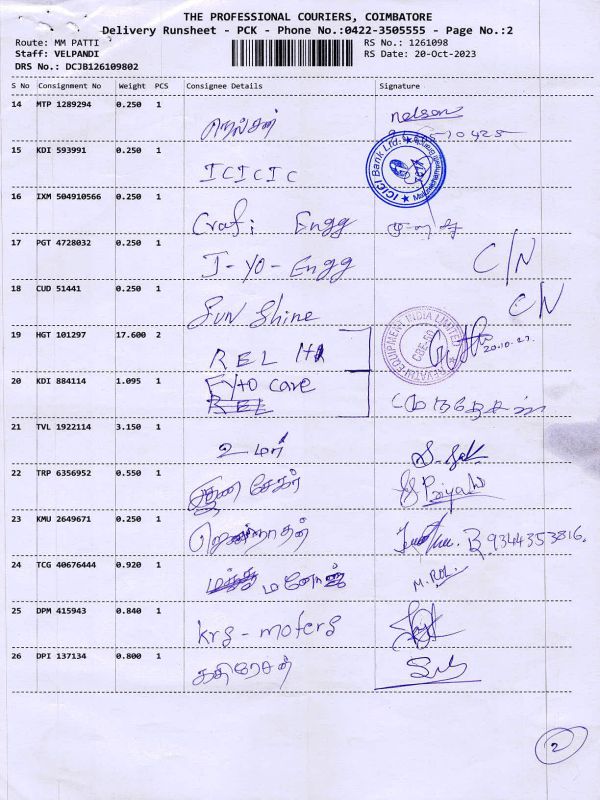 THE PROFESSIONAL COURIERS, COIMBATORE
Delivery Runsheet - PCK - Phone No.:0422-3505555 - Page No.:2
Route: MM PATTI RS No.: 1261098
Staff: VELPANDI RS Date: 20-Oct-2023
DRS No.: DCJB126109802
S No Consignment No Weight PCS Consignee Details Signature
14 MTP 1289294 0.250 1 நெல்சன் nelson
15 KDI 593991 0.250 1 ICICIC
ICICI Bank Ltd.
16 IXM 504910566 0.250 1 Crafi Engg
17 PGT 4728032 0.250 1 J-yo-Engg C/N
18 CUD 51441 0.250 1 Sun Shine C/N
19 HGT 101297 17.600 2 REL
REVATHI EQUIPMENT INDIA LIMITED
CBE-50
20.10.23
20 KDI 884114 1.095 1 Fyto care
REL
21 TVL 1922114 3.150 1 உமர்
22 TRP 6356952 0.550 1 குணசேகர் Priya
23 KMU 2649671 0.250 1 9344353816.
24 TCG 40676444 0.920 1 மனோஜ்
25 DPM 415943 0.840 1 krs-motors
26 DPI 137134 0.800 1 கதிரேசன்
2